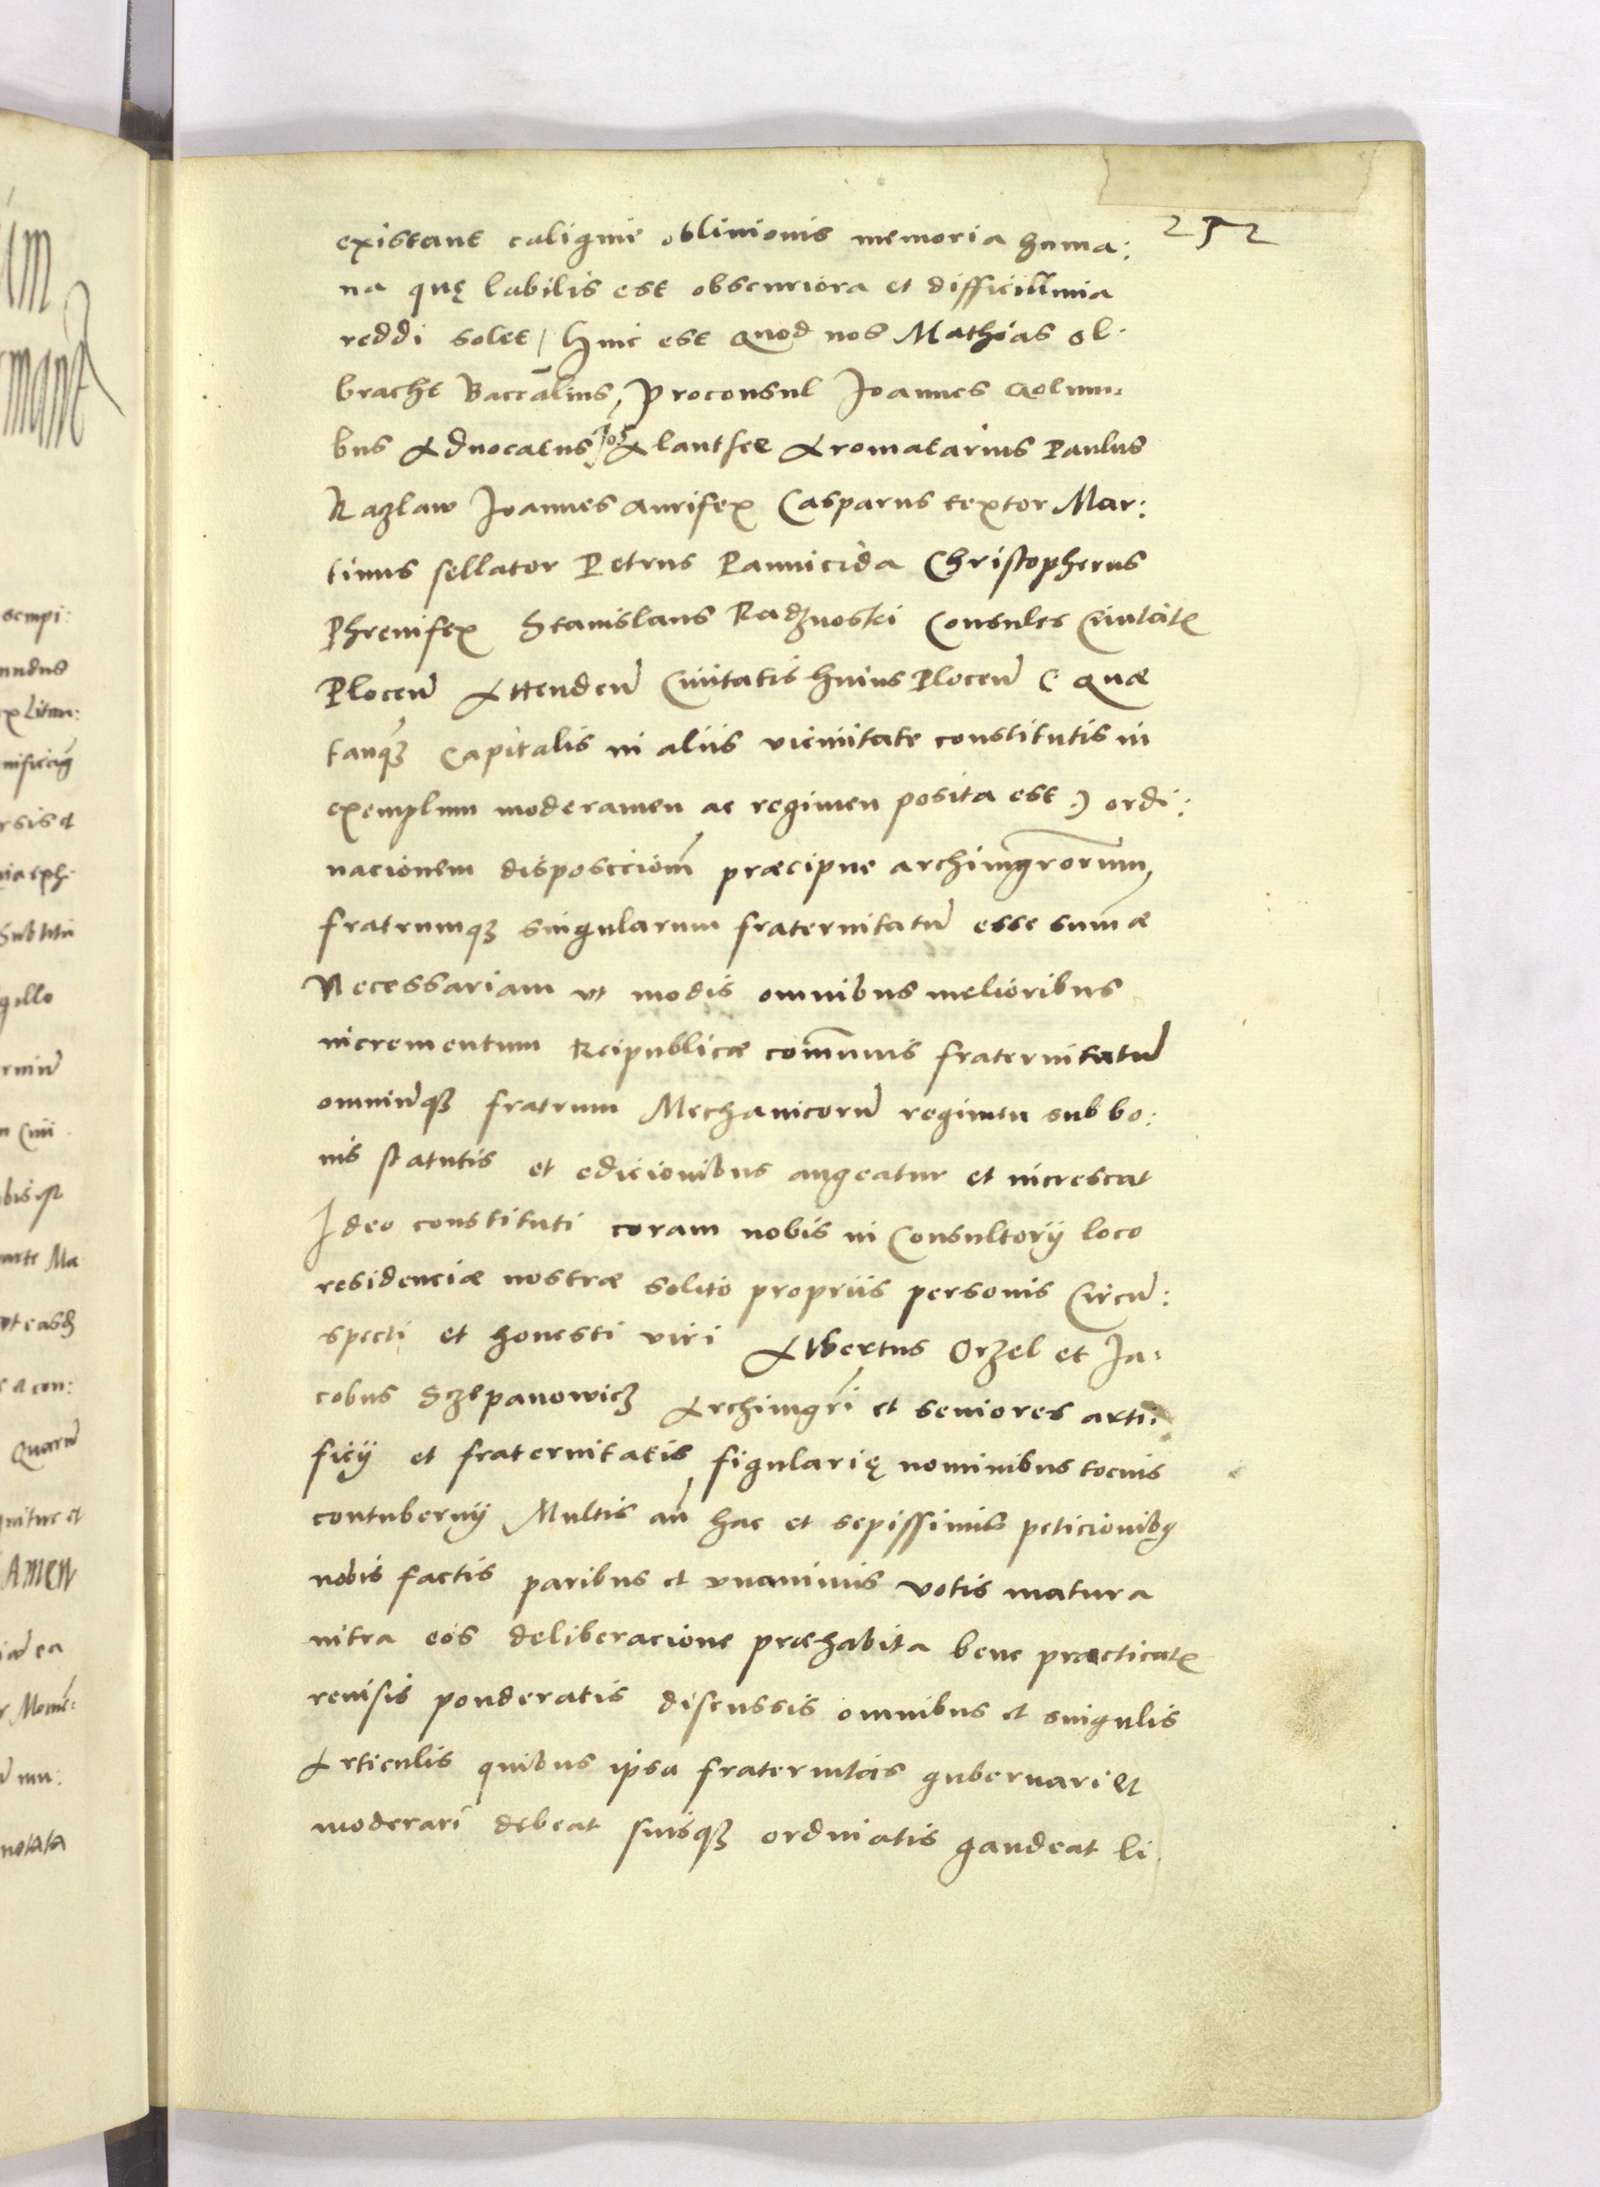 existant caligine oblivionis memoria huma:
252
na quę labilis est obscuriora et difficillima
reddi solet / Hinc est quod nos Mathias ol
bracht Baccalius, Proconsul Joannes Colum
bus Advocatus Alantsee Aromatarius Paulus
Razlaw Joannes Aurifex Casparus textor Mar:
tinus sellator Petrus Pannicida Christopherus
Phrenifex Stanislaus Radznoski Consules Civitat
Plocen Attenden Civitatis huius Plocen ( Quæ
tanq3 Capitalis in aliis vicinitate constitutis in
exemplum moderamen ac regimen posita est ) ordi:
nacionem præcipue archimgrorum
fratrumq3 singularum fraternitatu esse sumæ
Necessariam ut modis omnibus melioribus
incrementum Reipublicæ comunis fraternitatu
omniuq3 fratrum Mechanicoru regimen sub bo:
nis statutis et edicionibus augeatur et increscat
Ideo constituti coram nobis in Consultorij loco
residenciæ nostræ solito propriis personis Circu:
specti et honesti viri Albertus Orzel et Ja:
cobus Sczepanowicz Archimgri et seniores arti
ficij et fraternitatis figularię nominibus tocius
contubernij Multis an hac et sepissimis peticionibus
nobis factis paribus et unanimis votis matura
intra eos deliberacione præhabita bene practicat
revisis ponderatis discussis omnibus et singulis
Articulis quibus ipsa fraternitas gubernari et
moderari debeat suisq3 ordinatis gaudeat li